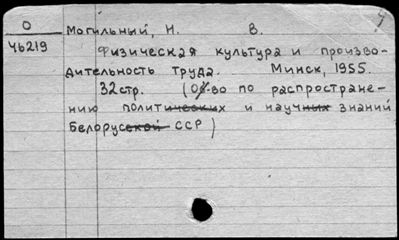 О
46219
Могильный, Н. В.
Физическая культура и произво-
дительность труда. Минск, 1955.
32 стр. (О-во по распростране-
нию политических и научных знаний
Белорусской ССР)